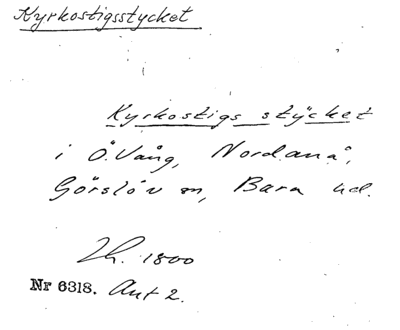 Kyrkostigsstycket
Kyrkostigs stÿcket
i Ö.Vång, Nordanå,
Görslöv sn, Bara hd.
Lh. 1800
Nr 6318. Akt 2.